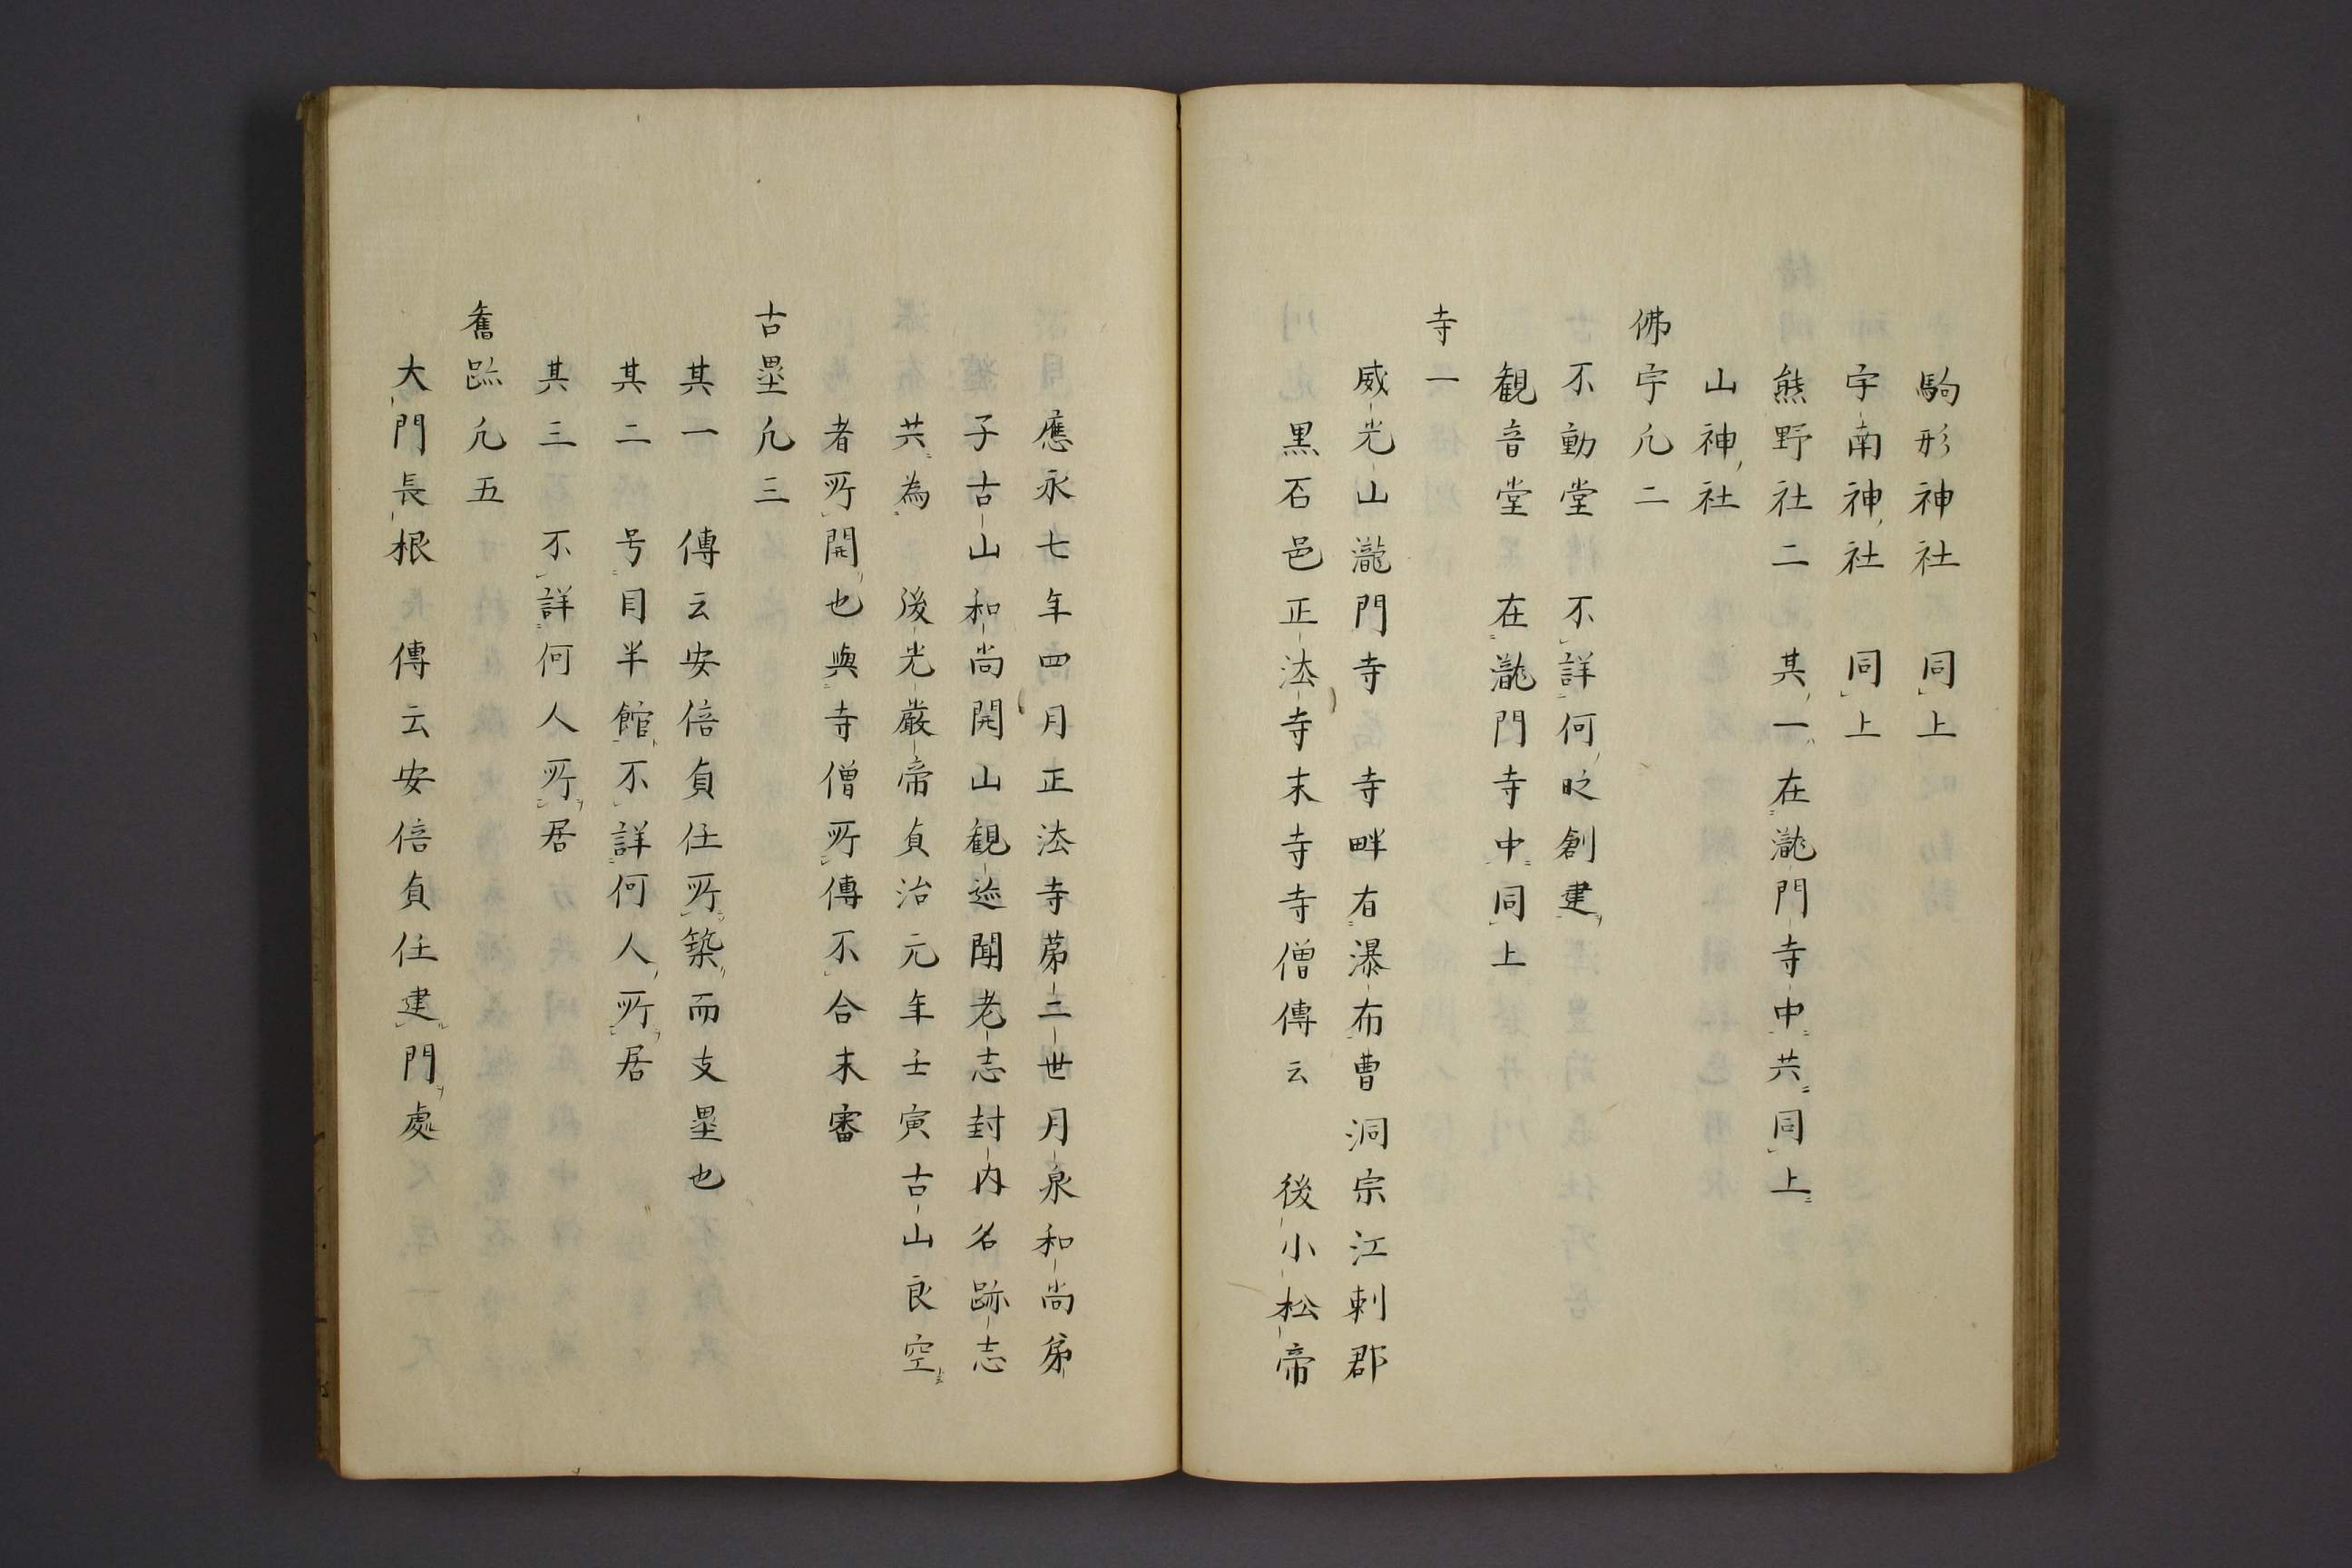 駒形神社　同上
宇南神社　同上
熊野社二　其一在瀧門寺中共同上
山神社
佛宇凢二
不動堂　不詳何时創建
観音堂　在瀧門寺中同上
寺一
威光山瀧門寺　寺畔有瀑布曹洞宗江刺郡
黒石邑正法寺末寺寺僧傳云　後小松帝
應永七年四月正法寺苐三世月泉和尚弟
子古山和尚開山観迹聞老志封内名跡志
共為　後光嚴帝貞治元年壬寅古山良空
者所開也與寺僧所傳不合未審
古壘凢三
其一　傳云安倍貞任所築而支壘也
其二　号月半館不詳何人所居
其三　不詳何人所居
舊跡凢五
大門長根　傳云安倍貞任建門處